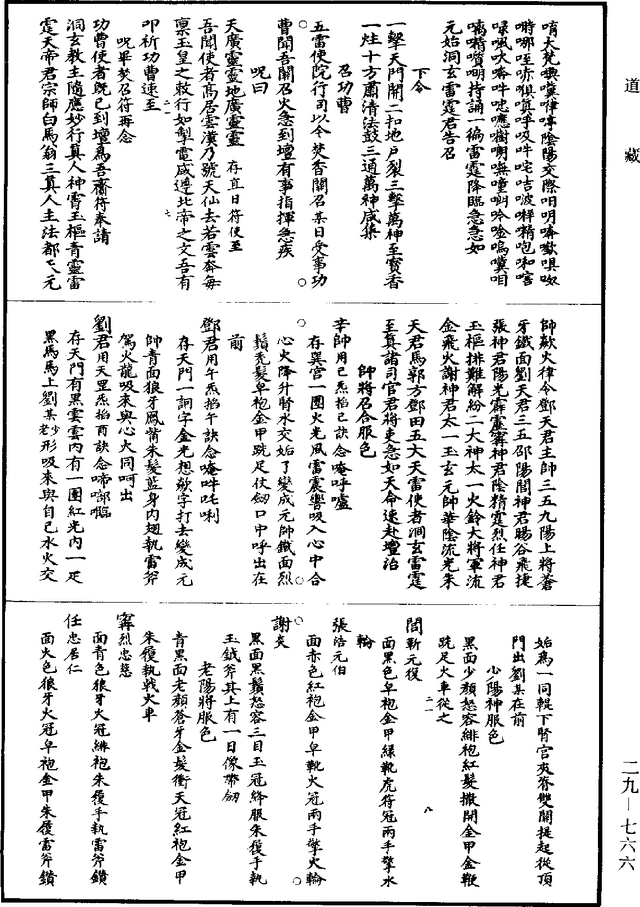 道藏
唷大梵㘔嚝律嘑陰陽交際呬明嗪噷唄呶
一擊天門開二扣地戶裂三擊萬神至寶香
一炷十方肅清法鼓三通萬神咸集
下令
元始洞玄雷霆君告召
召功曹
五雷使院行司以今焚香關召某日受事功
曹聞吾關召火急到壇有事指揮急疾
呪曰
天廣靈靈地廣靈靈 存直日符使至
吾聞使者高居雲漢乃號天仙去若雲奔每
稟玉皇之敕行如掣電咸遵北帝之文吾有
叩祈功曹速至
呪畢焚召符再念
功曹使者旣已到壇爲吾齎符奉請
洞玄教主隨應妙行眞人神霄玉樞青靈雷
霆天帝君宗師白馬翁三眞人主法都天元
師歘火律令鄧天君主帥三五九陽上將蒼
牙鐵面劉天君三五邵陽閤神君暘谷飛捷
張神君陽光霹靂寗神君陰精霆烈任神君
玉樞排難解紛二大神太一火鈴大將軍流
金飛火謝神君太一玉玄元帥華陰流光朱
天君馬郭方鄧田五大天雷使者洞玄雷霆
至眞諸司官君將吏急如天命速赴壇治
師將召合服色
辛帥用巳炁掐巳訣念唵呼嚧
存巽宮一團火光風雷震響吸入心中合
心火降升腎水交姤了變成元帥鐵面烈
鬚禿髮皁袍金甲跣足仗劒口中呼出在
前
鄧君用午炁掐午訣念唵吽吒唎
存天門一㗢字金光想歘字打去變成元
帥青面狼牙鳳觜朱髮藍身肉翅執雷斧
駕火龍吸來與心火同呵出
劉君用天罡炁掐酉訣念啼嘟㘕
存天門有黑雲雲內有一團紅光內一疋
黑馬馬上劉某少老形吸來與自己水火交
姤爲一同輥下腎宮夾脊雙關提起從頂
門出劉某在前
少陽神服色
黑面少顏怒容緋袍紅髮撒開金甲金鞭
跣足火車從之
閻靳元復
面黑色皁袍金甲綠靴虎符冠兩手擎水
輪
張浩元伯
面赤色紅袍金甲皁靴火冠兩手擎火輪
謝炎
黑面黑鬚怒容三目玉冠絳服朱履手執
玉鉞斧其上有一日像帶劒
老陽將服色
青黑面老顏蒼牙金髮衝天冠紅袍金甲
朱履執戟火車
寗烈忠慈
面青色狼牙火冠緋袍朱履手執雷斧鑽
任忠居仁
面火色狼牙火冠皁袍金甲朱履雷斧鑽
二九—七六六